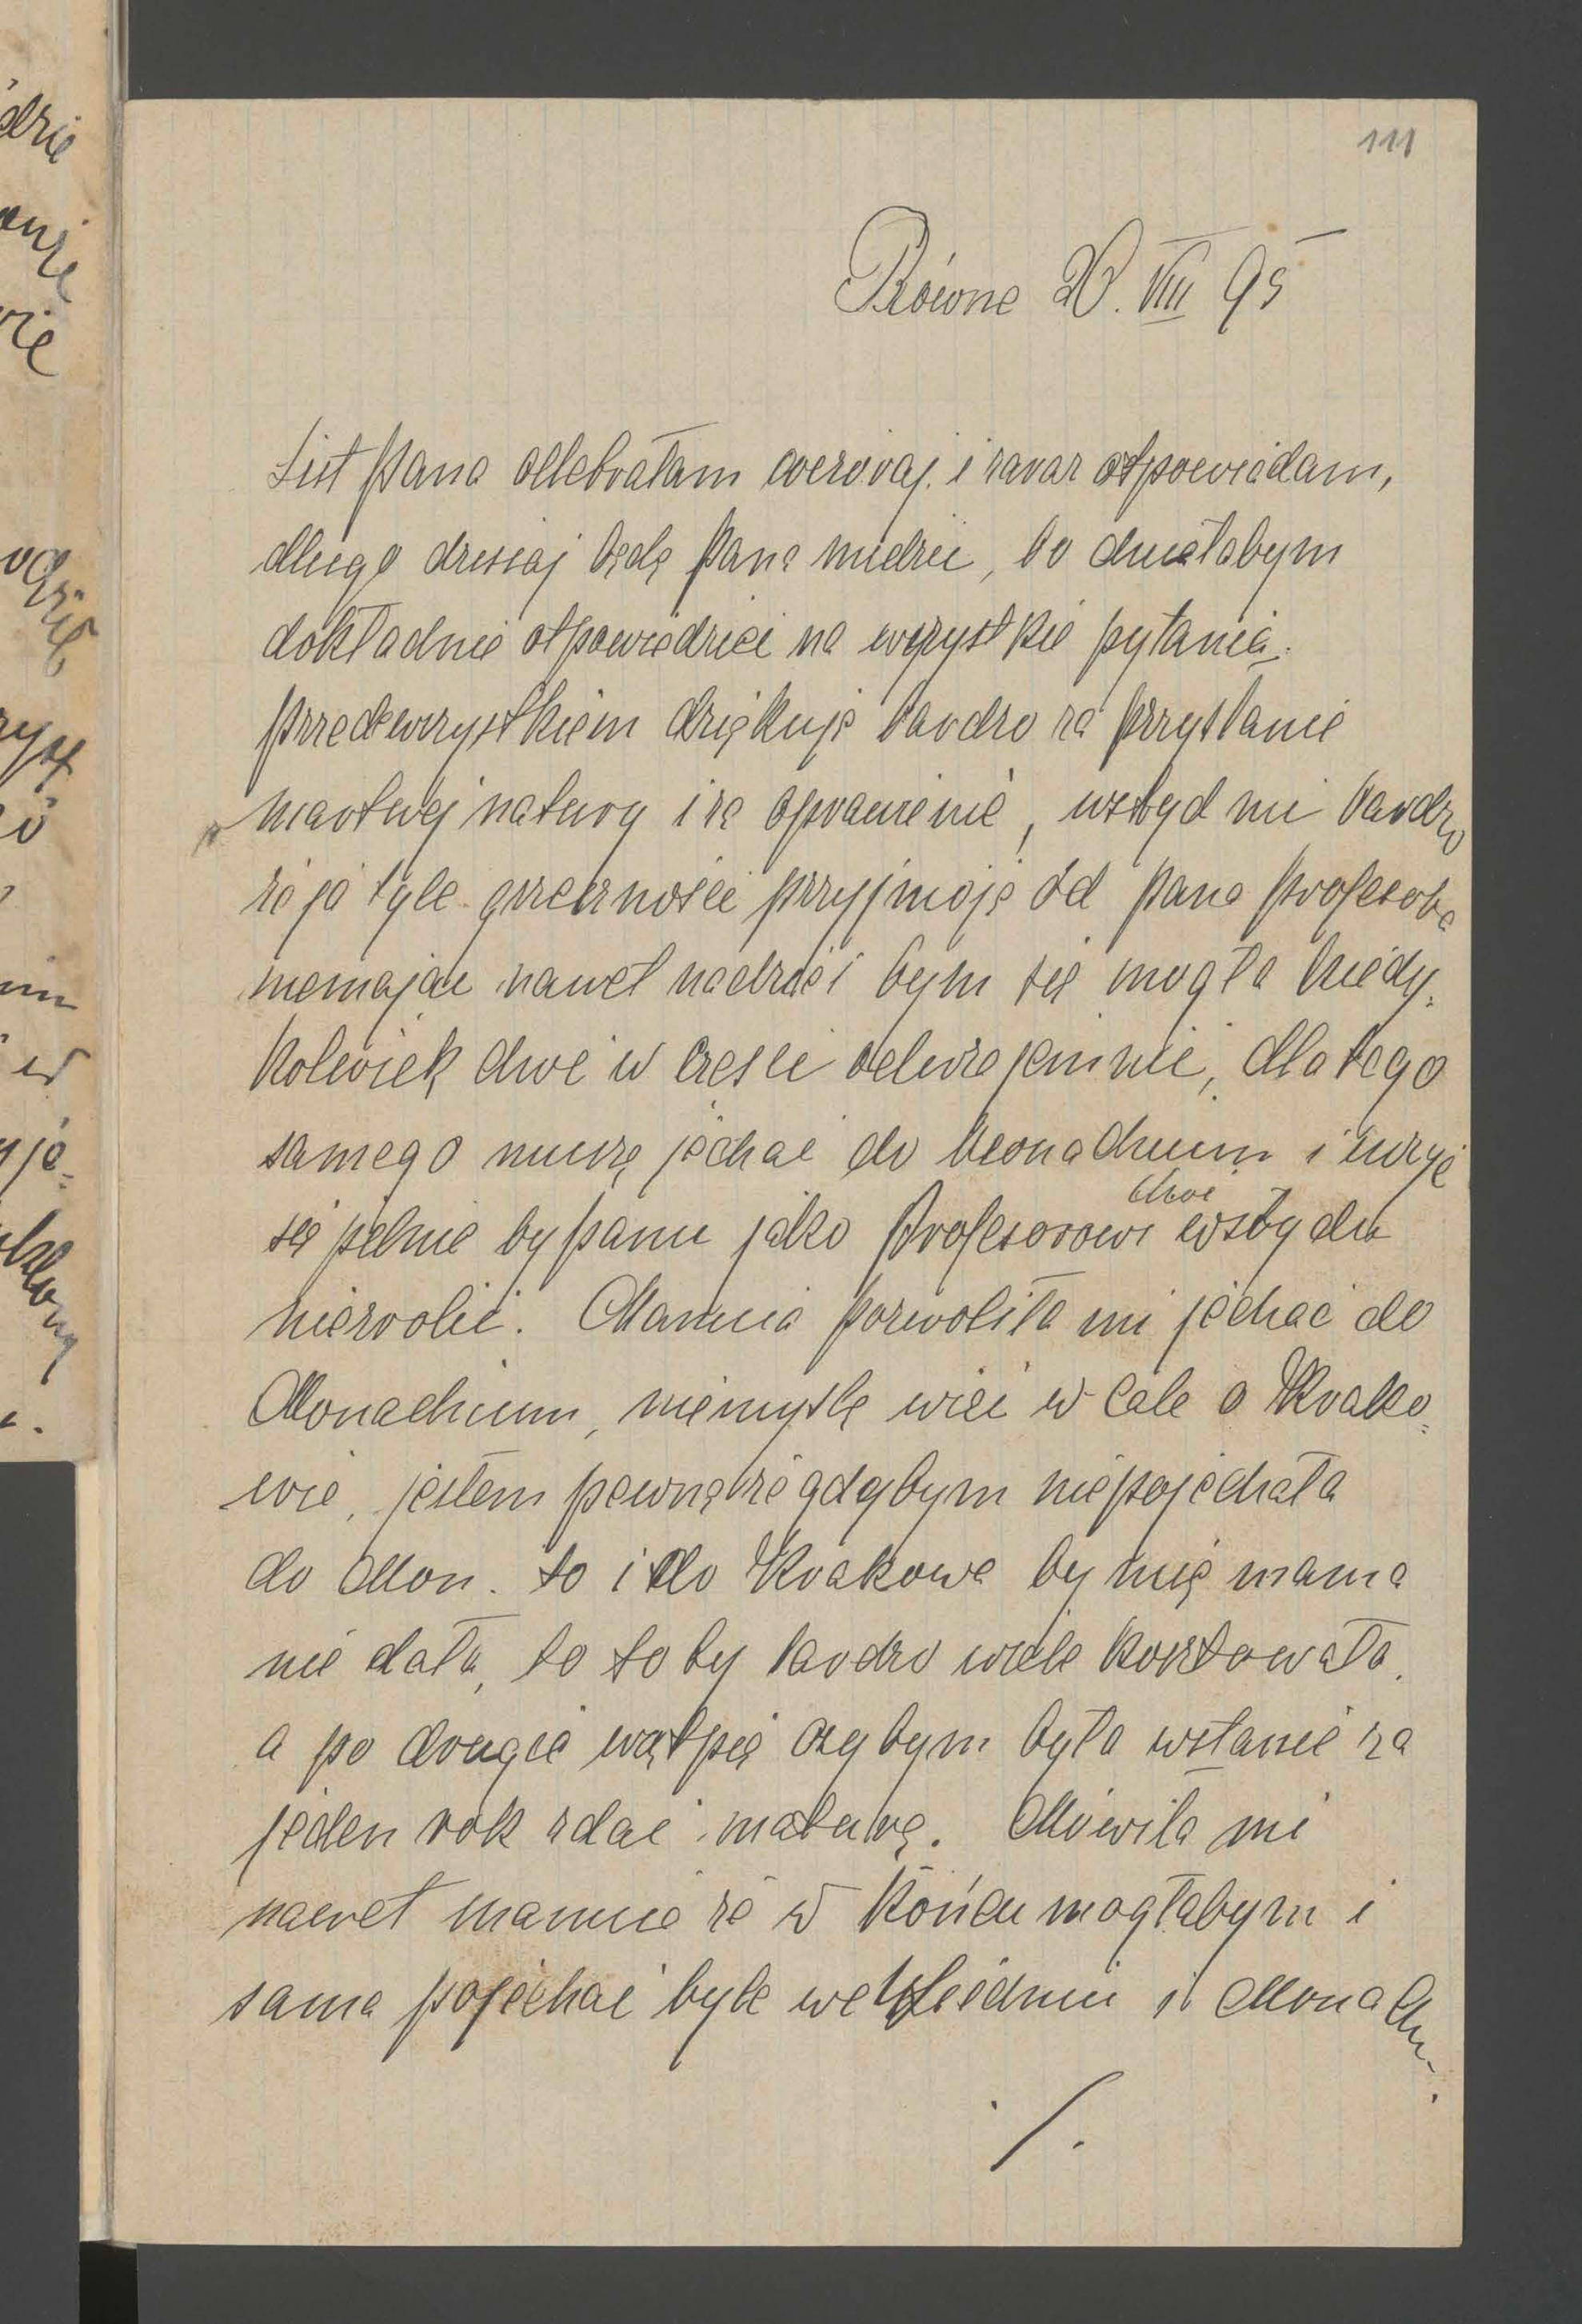 111
Równe 20. VIII 95
List pana odebrałam wczoraj i zaraz otpowiadam,
długo dzisiaj będę pana nudzić, bo chciałabym
dokładnie otpowiedzieć na wszystkie pytania.
przedewszystkiem dziękuję bardzo za przysłanie
martwej natury i za oprawienie, wstyd mi bardzo
że ja tyle grzeczności przyjmuję od pana profesora
niemając nawet nadzieji bym się mogła kiedy=
kolwiek choć w części odwzajemnić, dlatego
samego muszę jechać do Monachium i uczyć
się pilnie by panu jako Profesorowi choć wstydu
niezrobić. Mamcia pozwoliła mi jechać do
Monachium, niemyślę więc w cale o Krako=
wie, jestem pewną że gdybym niepojechała
do Mon. to i do Krakowa by mię mama
nie dała, bo to by bardzo wiele kosztowało.
a po drugie wątpię czybym była wstanie za
jeden rok zdać maturę. Mówiła mi
nawet mamcia że w końcu mogłabym i
sama pojechać byle we Wiedniu i Monach.
./.
drie
wie
im
w